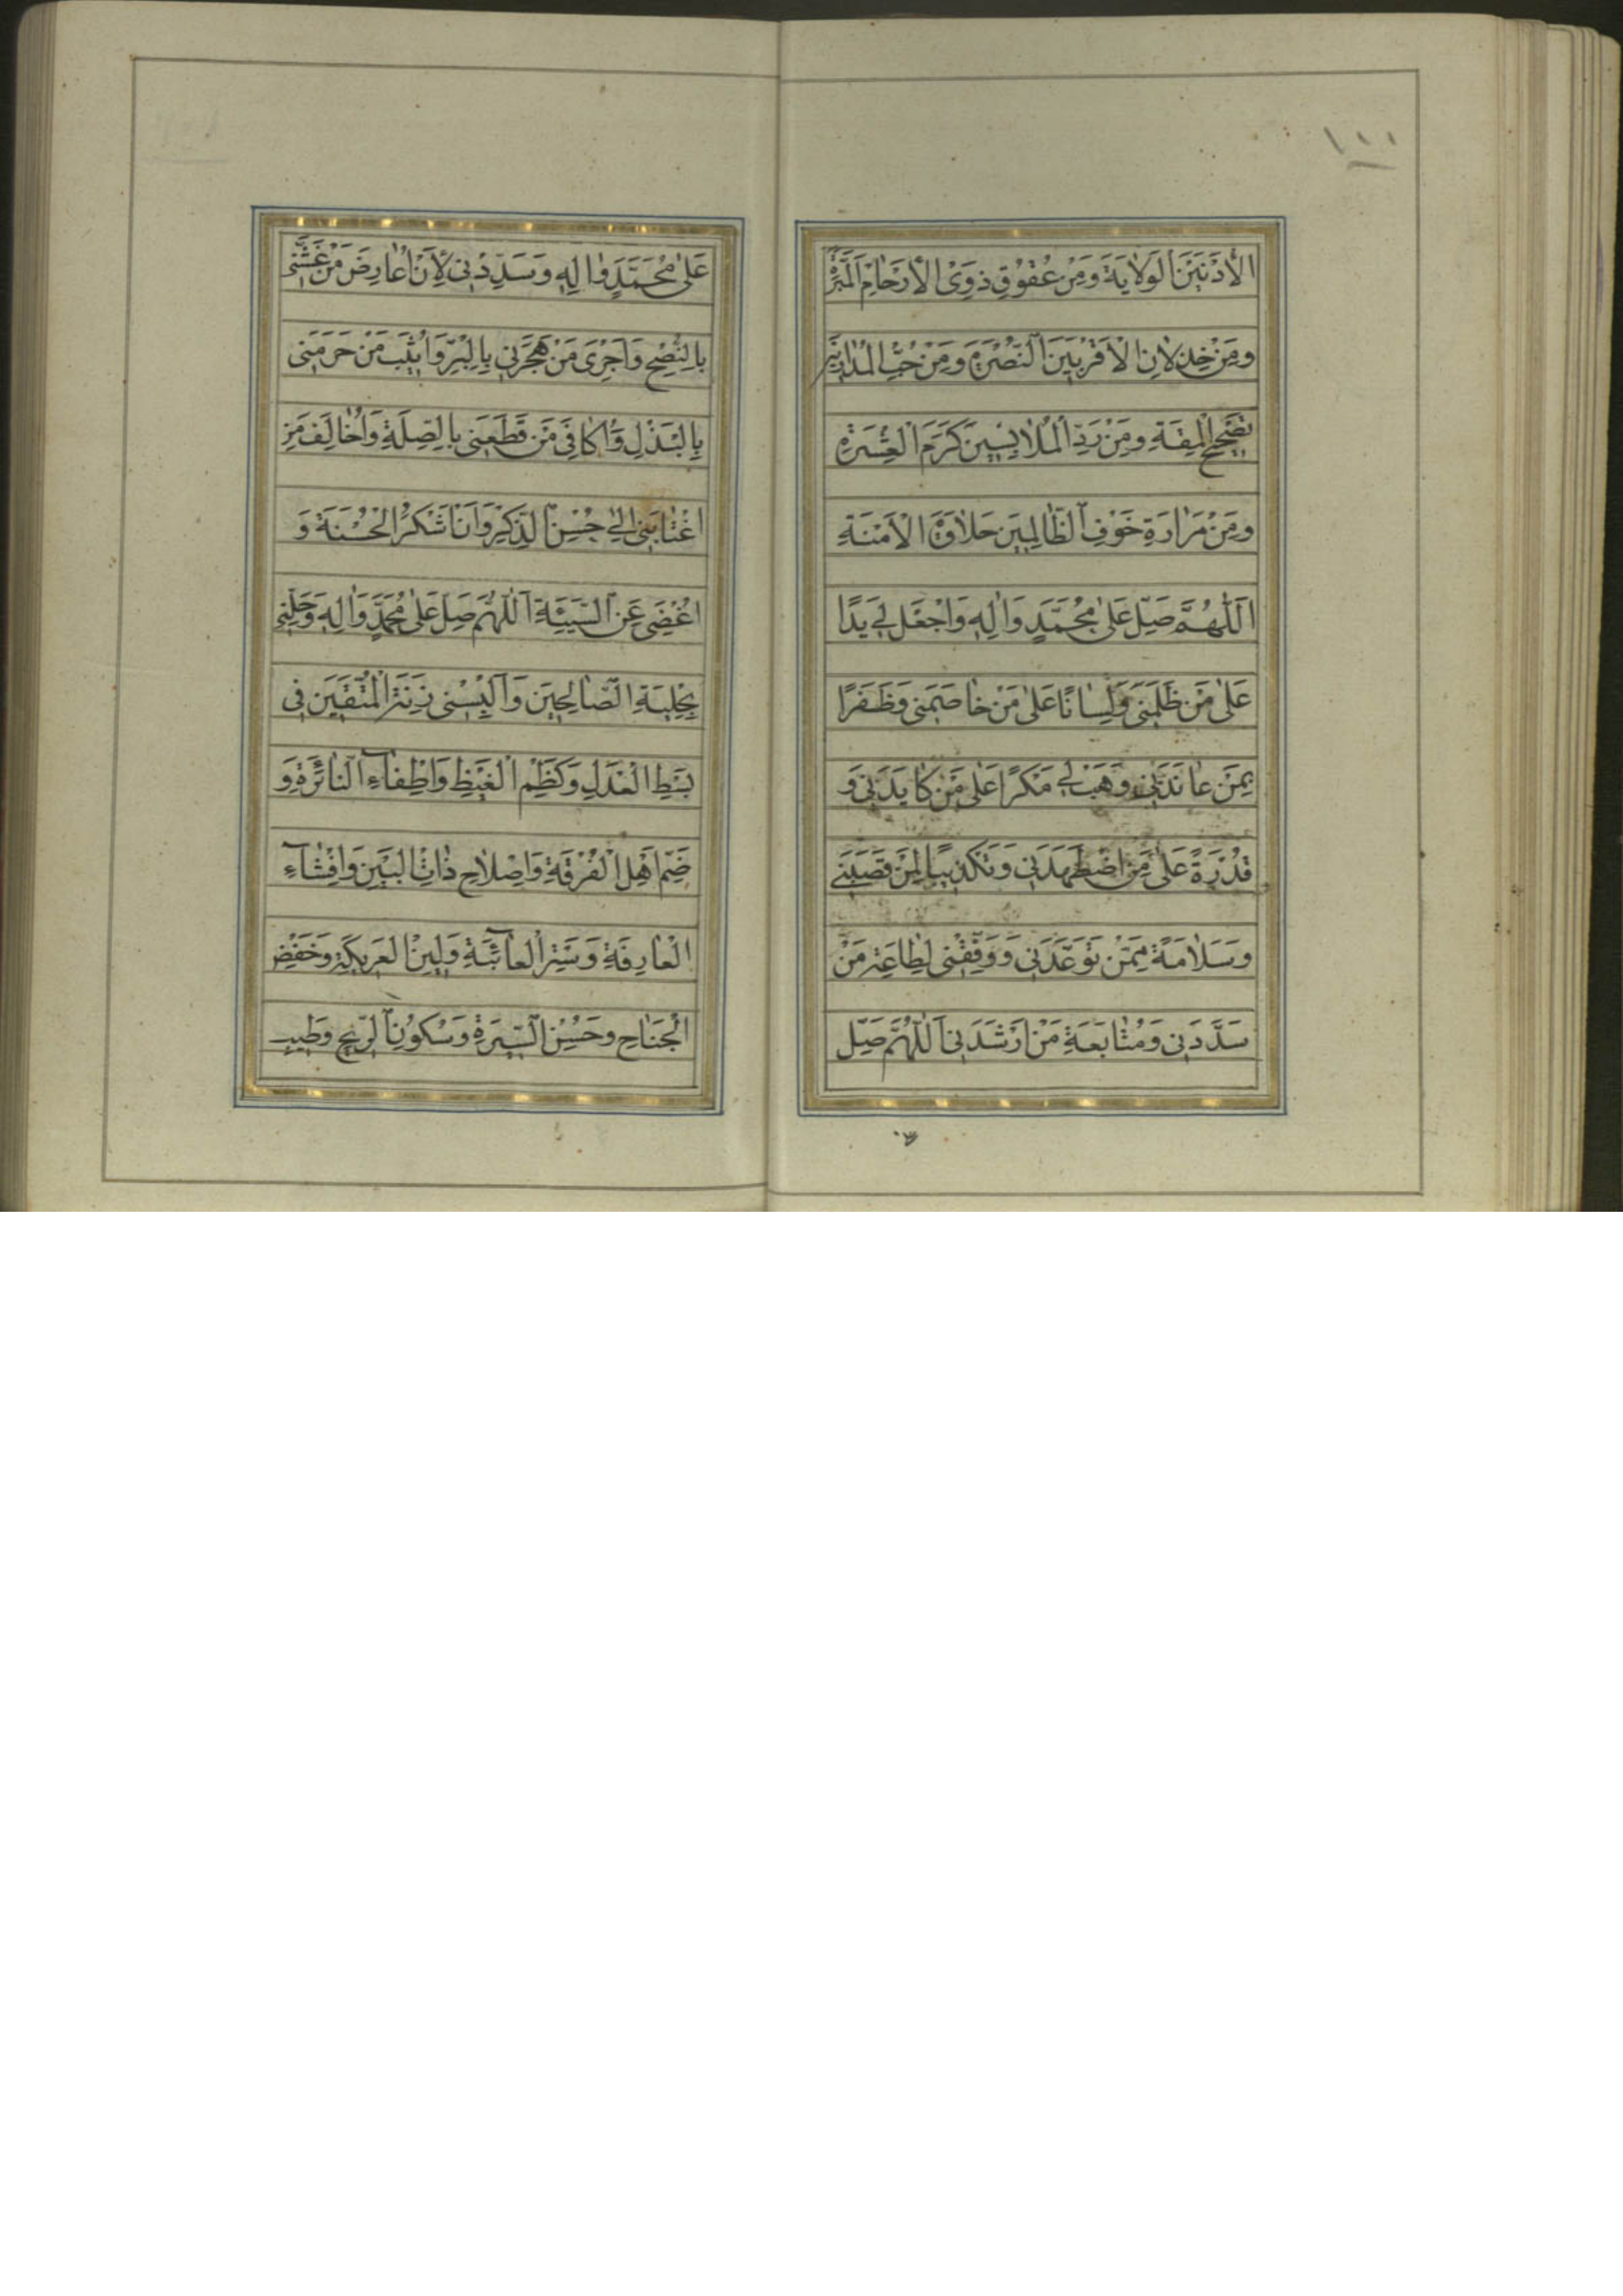 ١٠٠
الْأَدْنَيْنَ الْوَلَايَةَ وَمِنْ عُقُوقِ ذَوِي الْأَرْحَامِ الْمَبَرَّةَ
وَمِنْ خِذْلَانِ الْأَقْرَبِينَ النُّصْرَةَ وَمِنْ حُبِّ الْمُدَارِينَ
تَصْحِيحَ الْمِقَةِ وَمِنْ رَدِّ الْمُلَابِسِينَ كَرَمَ الْعِشْرَةِ
وَمِنْ مَرَارَةِ خَوْفِ الظَّالِمِينَ حَلَاوَةَ الْأَمَنَةِ
اَللّٰهُمَّ صَلِّ عَلَى مُحَمَّدٍ وَاٰلِهِ وَاجْعَلْ لِي يَدًا
عَلَى مَنْ ظَلَمَنِي وَلِسَانًا عَلَى مَنْ خَاصَمَنِي وَظَفَرًا
بِمَنْ عَانَدَنِي وَهَبْ لِي مَكْرًا عَلَى مَنْ كَايَدَنِي وَ
قُدْرَةً عَلَى مَنِ اضْطَهَدَنِي وَتَكْذِيبًا لِمَنْ قَصَبَنِي
وَسَلَامَةً مِمَّنْ تَوَعَّدَنِي وَوَفِّقْنِي لِطَاعَةِ مَنْ
سَدَّدَنِي وَمُتَابَعَةِ مَنْ أَرْشَدَنِي اَللّٰهُمَّ صَلِّ
عَلَى مُحَمَّدٍ وَاٰلِهِ وَسَدِّدْنِي لِأَنْ أُعَارِضَ مَنْ غَشَّنِي
بِالنُّصْحِ وَأَجْزِيَ مَنْ هَجَرَنِي بِالْبِرِّ وَأُثِيبَ مَنْ حَرَمَنِي
بِالْبَذْلِ وَأُكَافِيَ مَنْ قَطَعَنِي بِالصِّلَةِ وَأُخَالِفَ مَنِ
اغْتَابَنِي إِلَى حُسْنِ الذِّكْرِ وَأَنْ أَشْكُرَ الْحَسَنَةَ وَ
أُغْضِيَ عَنِ السَّيِّئَةِ اَللّٰهُمَّ صَلِّ عَلَى مُحَمَّدٍ وَاٰلِهِ وَحَلِّنِي
بِحِلْيَةِ الصَّالِحِينَ وَأَلْبِسْنِي زِينَةَ الْمُتَّقِينَ فِي
بَسْطِ الْعَدْلِ وَكَظْمِ الْغَيْظِ وَإِطْفَاءِ النَّائِرَةِ وَ
ضَمِّ أَهْلِ الْفُرْقَةِ وَإِصْلَاحِ ذَاتِ الْبَيْنِ وَإِفْشَاءِ
الْعَارِفَةِ وَسَتْرِ الْعَائِبَةِ وَلِينِ الْعَرِيكَةِ وَخَفْضِ
الْجَنَاحِ وَحُسْنِ السِّيرَةِ وَسُكُونِ الرِّيحِ وَطِيبِ